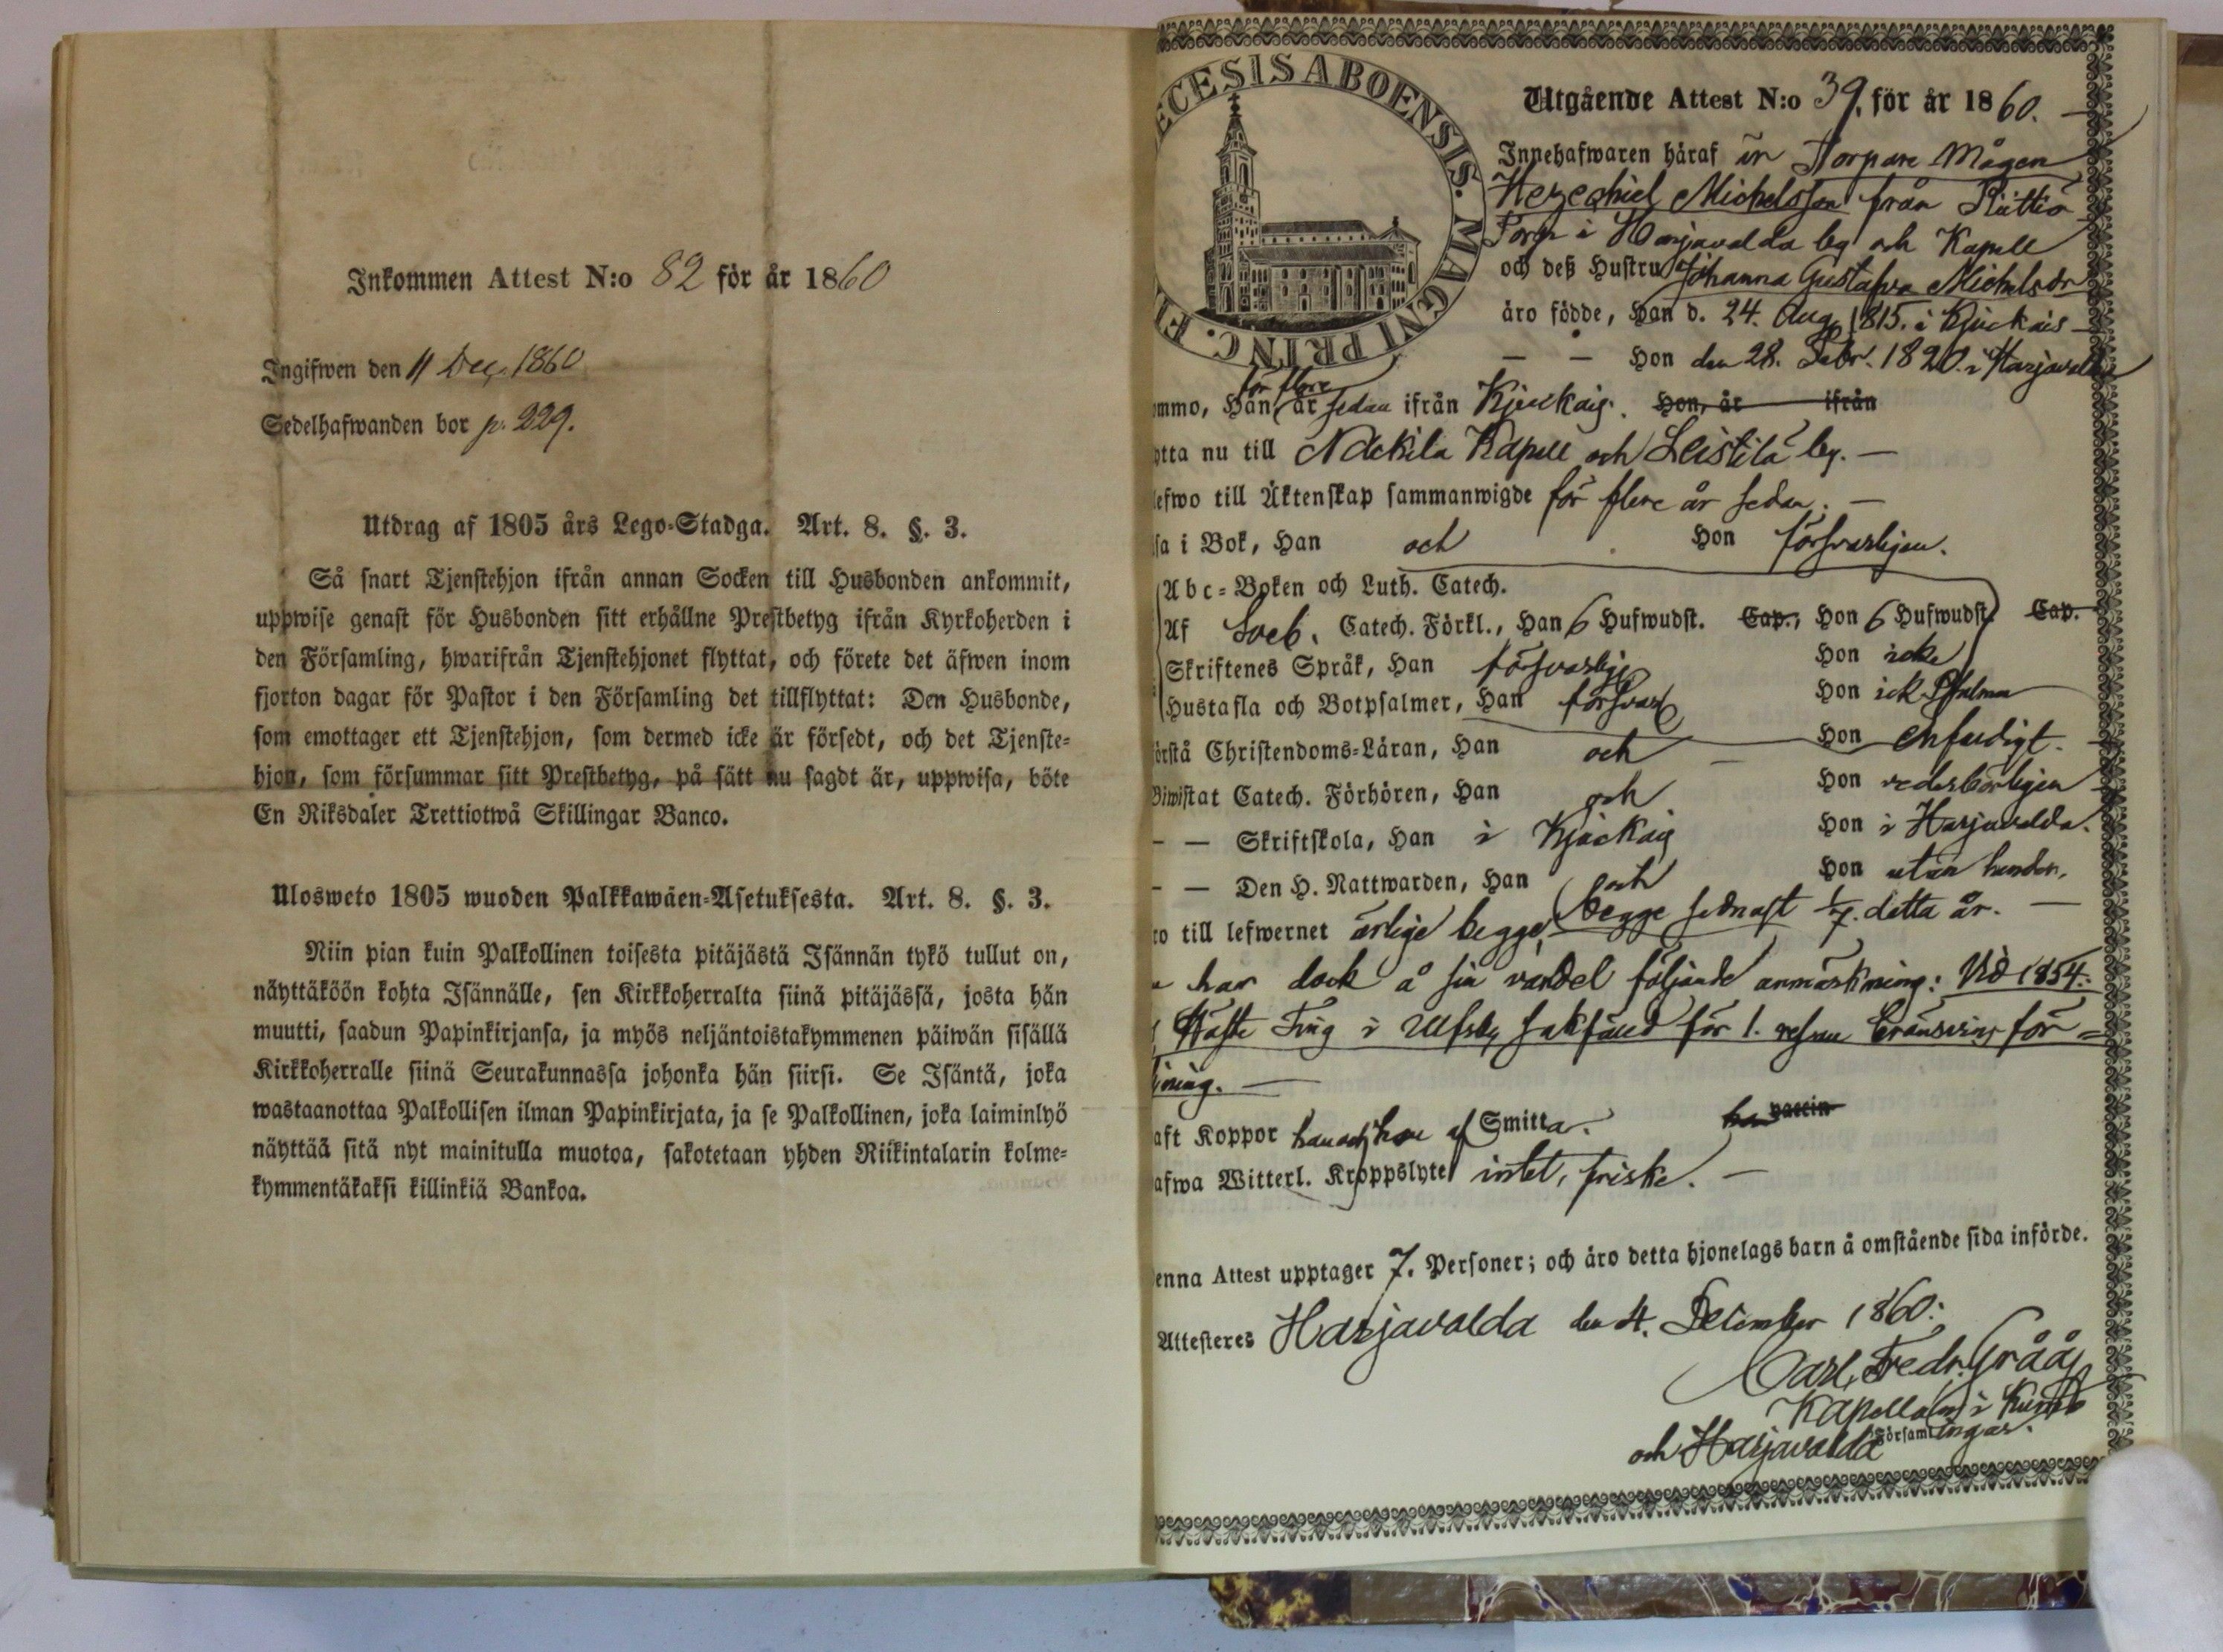 Inkommen Attest N:o 82 för år 1860
Ingifwen den 11 Dec. 1860
Sedelhafwanden bor p. 229.
Utdrag af 1805 års Lego-Stadga. Art. 8. §. 3.
Så snart Tjenstehjon ifrån annan Socken till Husbonden ankommit,
uppwise genast för Husbonden sitt erhållne Prestbetyg ifrån Kyrkoherden i
den Församling, hwarifrån Tjenstehjonet flyttat, och förete det äfwen inom
fjorton dagar för Pastor i den Församling det tillflyttat: Den Husbonde,
som emottager ett Tjenstehjon, som dermed icke är försedt, och det Tjenste-
hjon, som försummar sitt Prestbetyg, på sätt nu sagdt är, uppwisa, böte
En Riksdaler Trettiotwå Skillingar Banco.
Ulosweto 1805 wuoden Palkkawäen-Asetuksesta. Art. 8. §. 3.
Niin pian kuin Palkollinen toisesta pitäjästä Isännän tykö tullut on,
näyttäköön kohta Isännälle, sen Kirkkoherralta siinä pitäjässä, josta hän
muutti, saadun Papinkirjansa, ja myös neljäntoistakymmenen päiwän sisällä
Kirkkoherralle siinä Seurakunnassa johonka hän siirsi. Se Isäntä, joka
wastaanottaa Palkollisen ilman Papinkirjata, ja se Palkollinen, joka laiminlyö
näyttää sitä nyt mainitulla muotoa, sakotetaan yhden Riikintalarin kolme-
kymmentäkaksi killinkiä Bankoa.
ECESIS ABOENSIS. MAGNI PRINC. FI
Utgående Attest N:o 39. för år 1860.
Innehafwaren häraf är Torpare Mågen
Hezechiel Michelsson från
Torp i Harjavalda by och Kapell
och deß Hustru Johanna Gustafva Michelsdr
äro födde, Han d. 24. Aug. 1815. i Kjuckais
— — Hon den 28. Febr. 1820. i Harjavalda
ommo, Han för flere år sedan ifrån Kjuckais. Hon, år ifrån
ytta nu till Nackila Kapell och Leistilä by. —
lefwo till Äktenskap sammanwigde för flere år sedan. —
sa i Bok, Han och Hon försvarligen.
Abc-Boken och Luth. Catech.
Af Sveb. Catech. Förkl., Han 6 Hufwudst. Cap., Hon 6 Hufwudst. Cap.
Skriftenes Språk, Han försvarlig Hon icke
Hustafla och Botpsalmer, Han försvarl Hon ick Psalmer
örstå Christendoms-Läran, Han och — Hon enfaldigt.
Biwistat Catech. Förhören, Han och Hon vederbörligen
— — Skriftskola, Han i Kjuckais Hon i Harjavalda.
— — Den H. Nattwarden, Han och Hon utan hinder,
ro till lefwernet ärlige begge, begge sednast 1/7. detta år. —
har dock å sin vandel följande anmärkning: Vid 1854.
Höste Ting i Ulfsby sakfäld för 1. resan bränvins för=
jning. —
aft Koppor han och hon af Smitta. han vaccin
afwa Witterl. Kroppslyte intet, friske. —
enna Attest upptager 7. Personer; och äro detta hjonelags barn å omstående sida införde.
Attesteres Harjavalda den 4. December 1860.
Carl Fredr. Gråå
Kapellan i
och Harjavalda Församlingar.